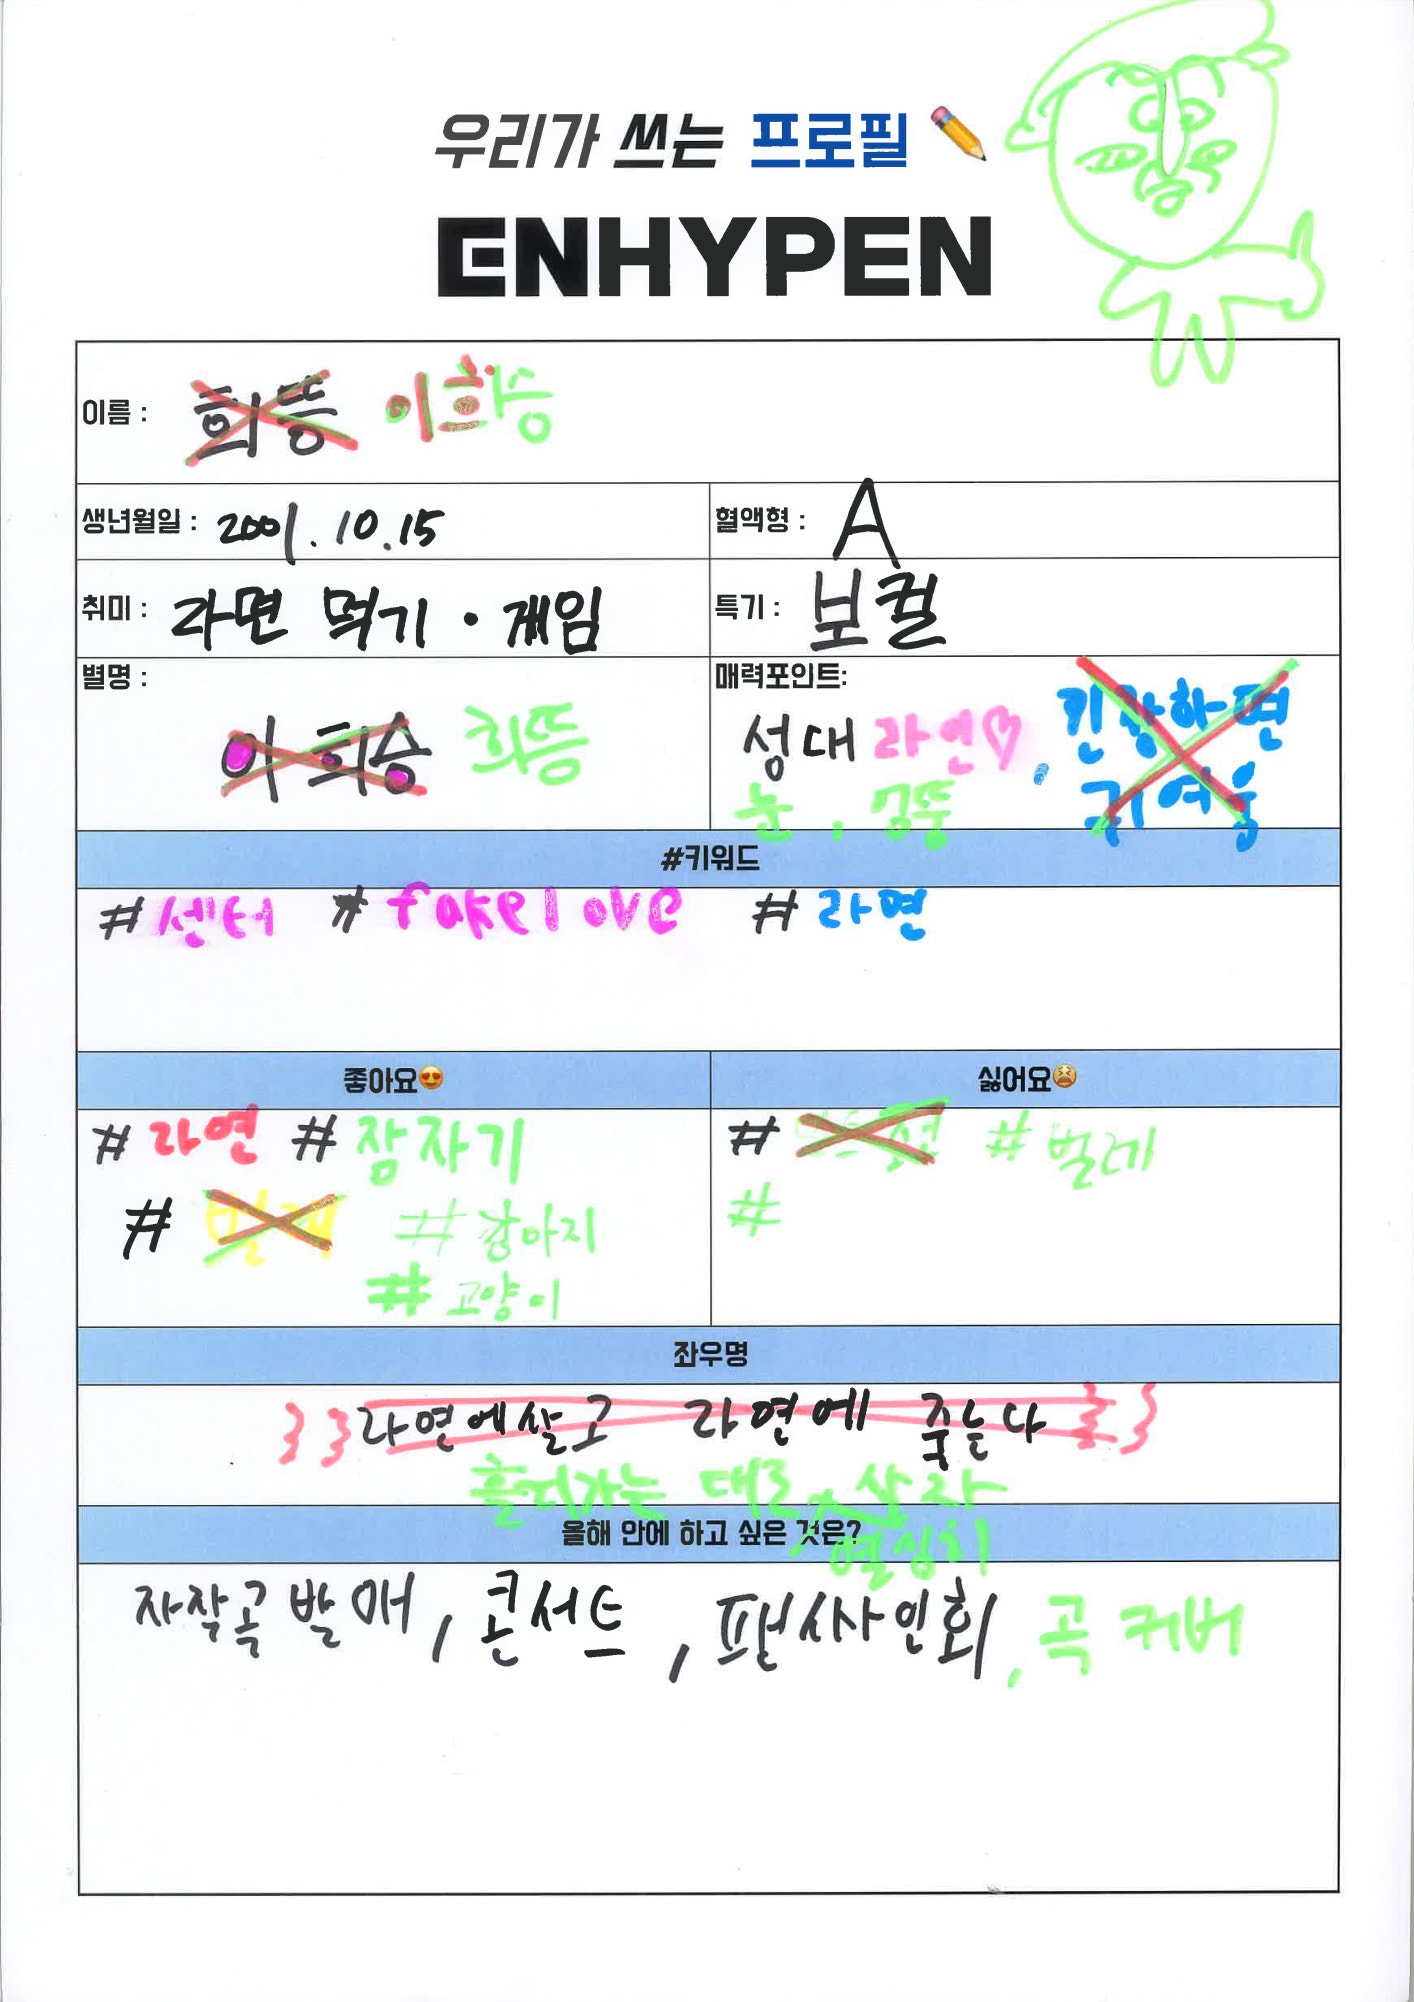 우리가 쓰는 프로필
ENHYPEN
이름 : 희뜽 이희승
생년월일 : 2001.10.15
혈액형 : A
취미 : 라면 먹기 · 게임
특기 : 보컬
별명 :
이희승 희뜽
매력포인트:
성대 라인♡, 긴장하면
눈, 엉뚱 귀여움
#키워드
#센터 #fakelove #라면
좋아요😍
싫어요😫
#라면 #잠자기
#벌레 #강아지
#고양이
# #벌레
#
좌우명
}} 라면에살고 라면에 죽는다 }}
흘러가는 대로, 살자
열심히
올해 안에 하고 싶은 것은?
자작곡 발매, 콘서트, 팬사인회, 곡 커버